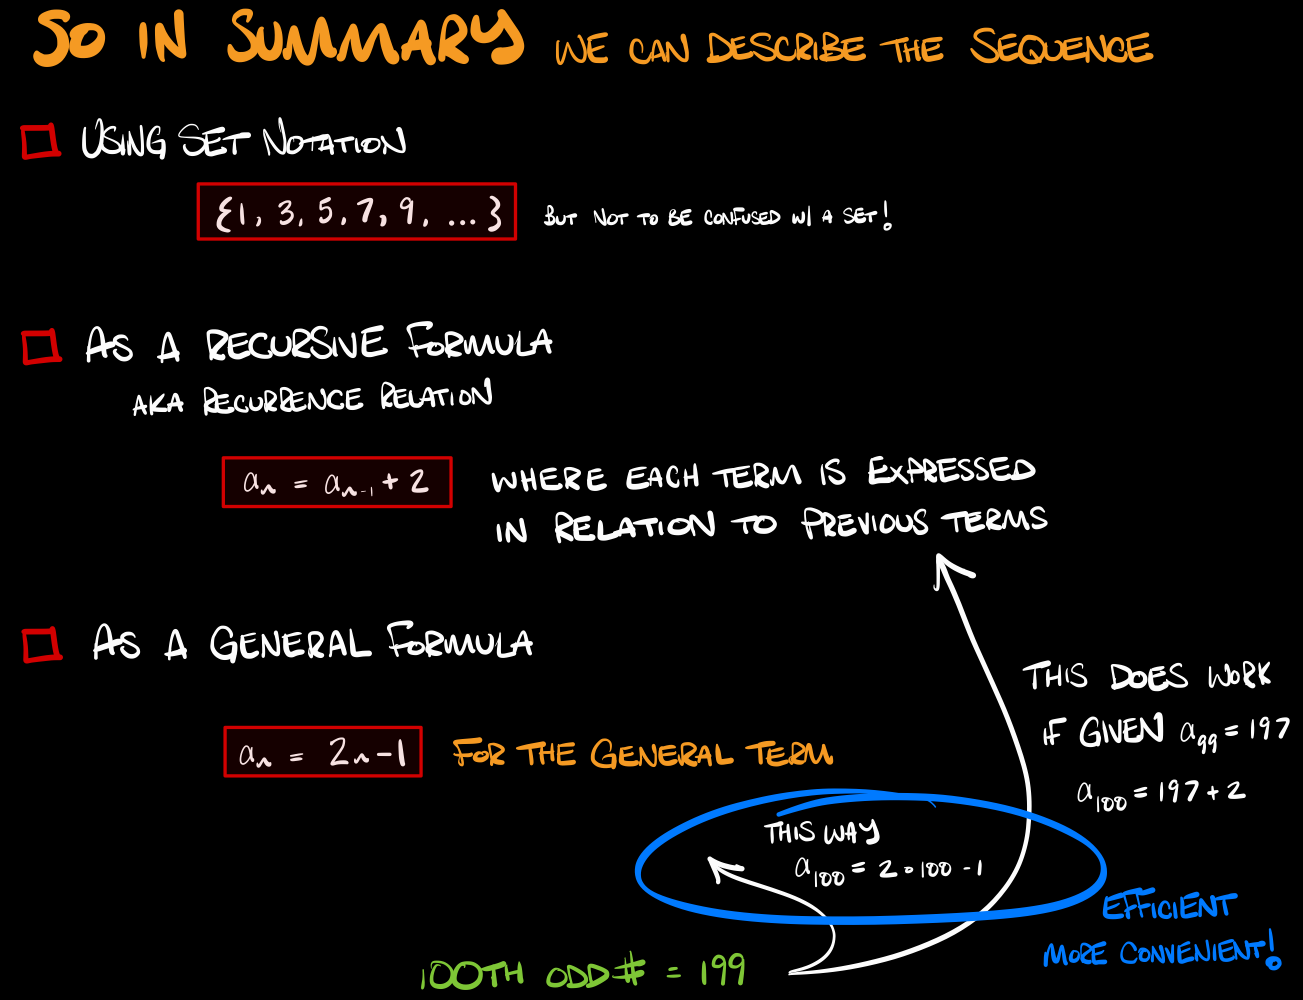 SO IN SUMMARY WE CAN DESCRIBE THE SEQUENCE
USING SET NOTATION
{1, 3, 5, 7, 9, ... } BUT NOT TO BE CONFUSED W/ A SET!
AS A RECURSIVE FORMULA
AKA RECURRENCE RELATION
aₙ = aₙ₋₁ + 2 WHERE EACH TERM IS EXPRESSED
IN RELATION TO PREVIOUS TERMS
AS A GENERAL FORMULA
aₙ = 2n-1 FOR THE GENERAL TERM
THIS DOES WORK
IF GIVEN a₉₉ = 197
a₁₀₀ = 197 + 2
THIS WAY
a₁₀₀ = 2•100 - 1
EFFICIENT
MORE CONVENIENT!
100TH ODD# = 199